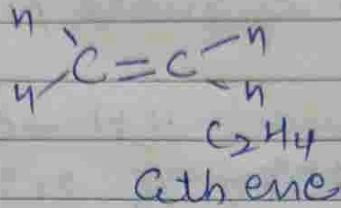 H H
C=C
H H
C₂H₄
Ethene